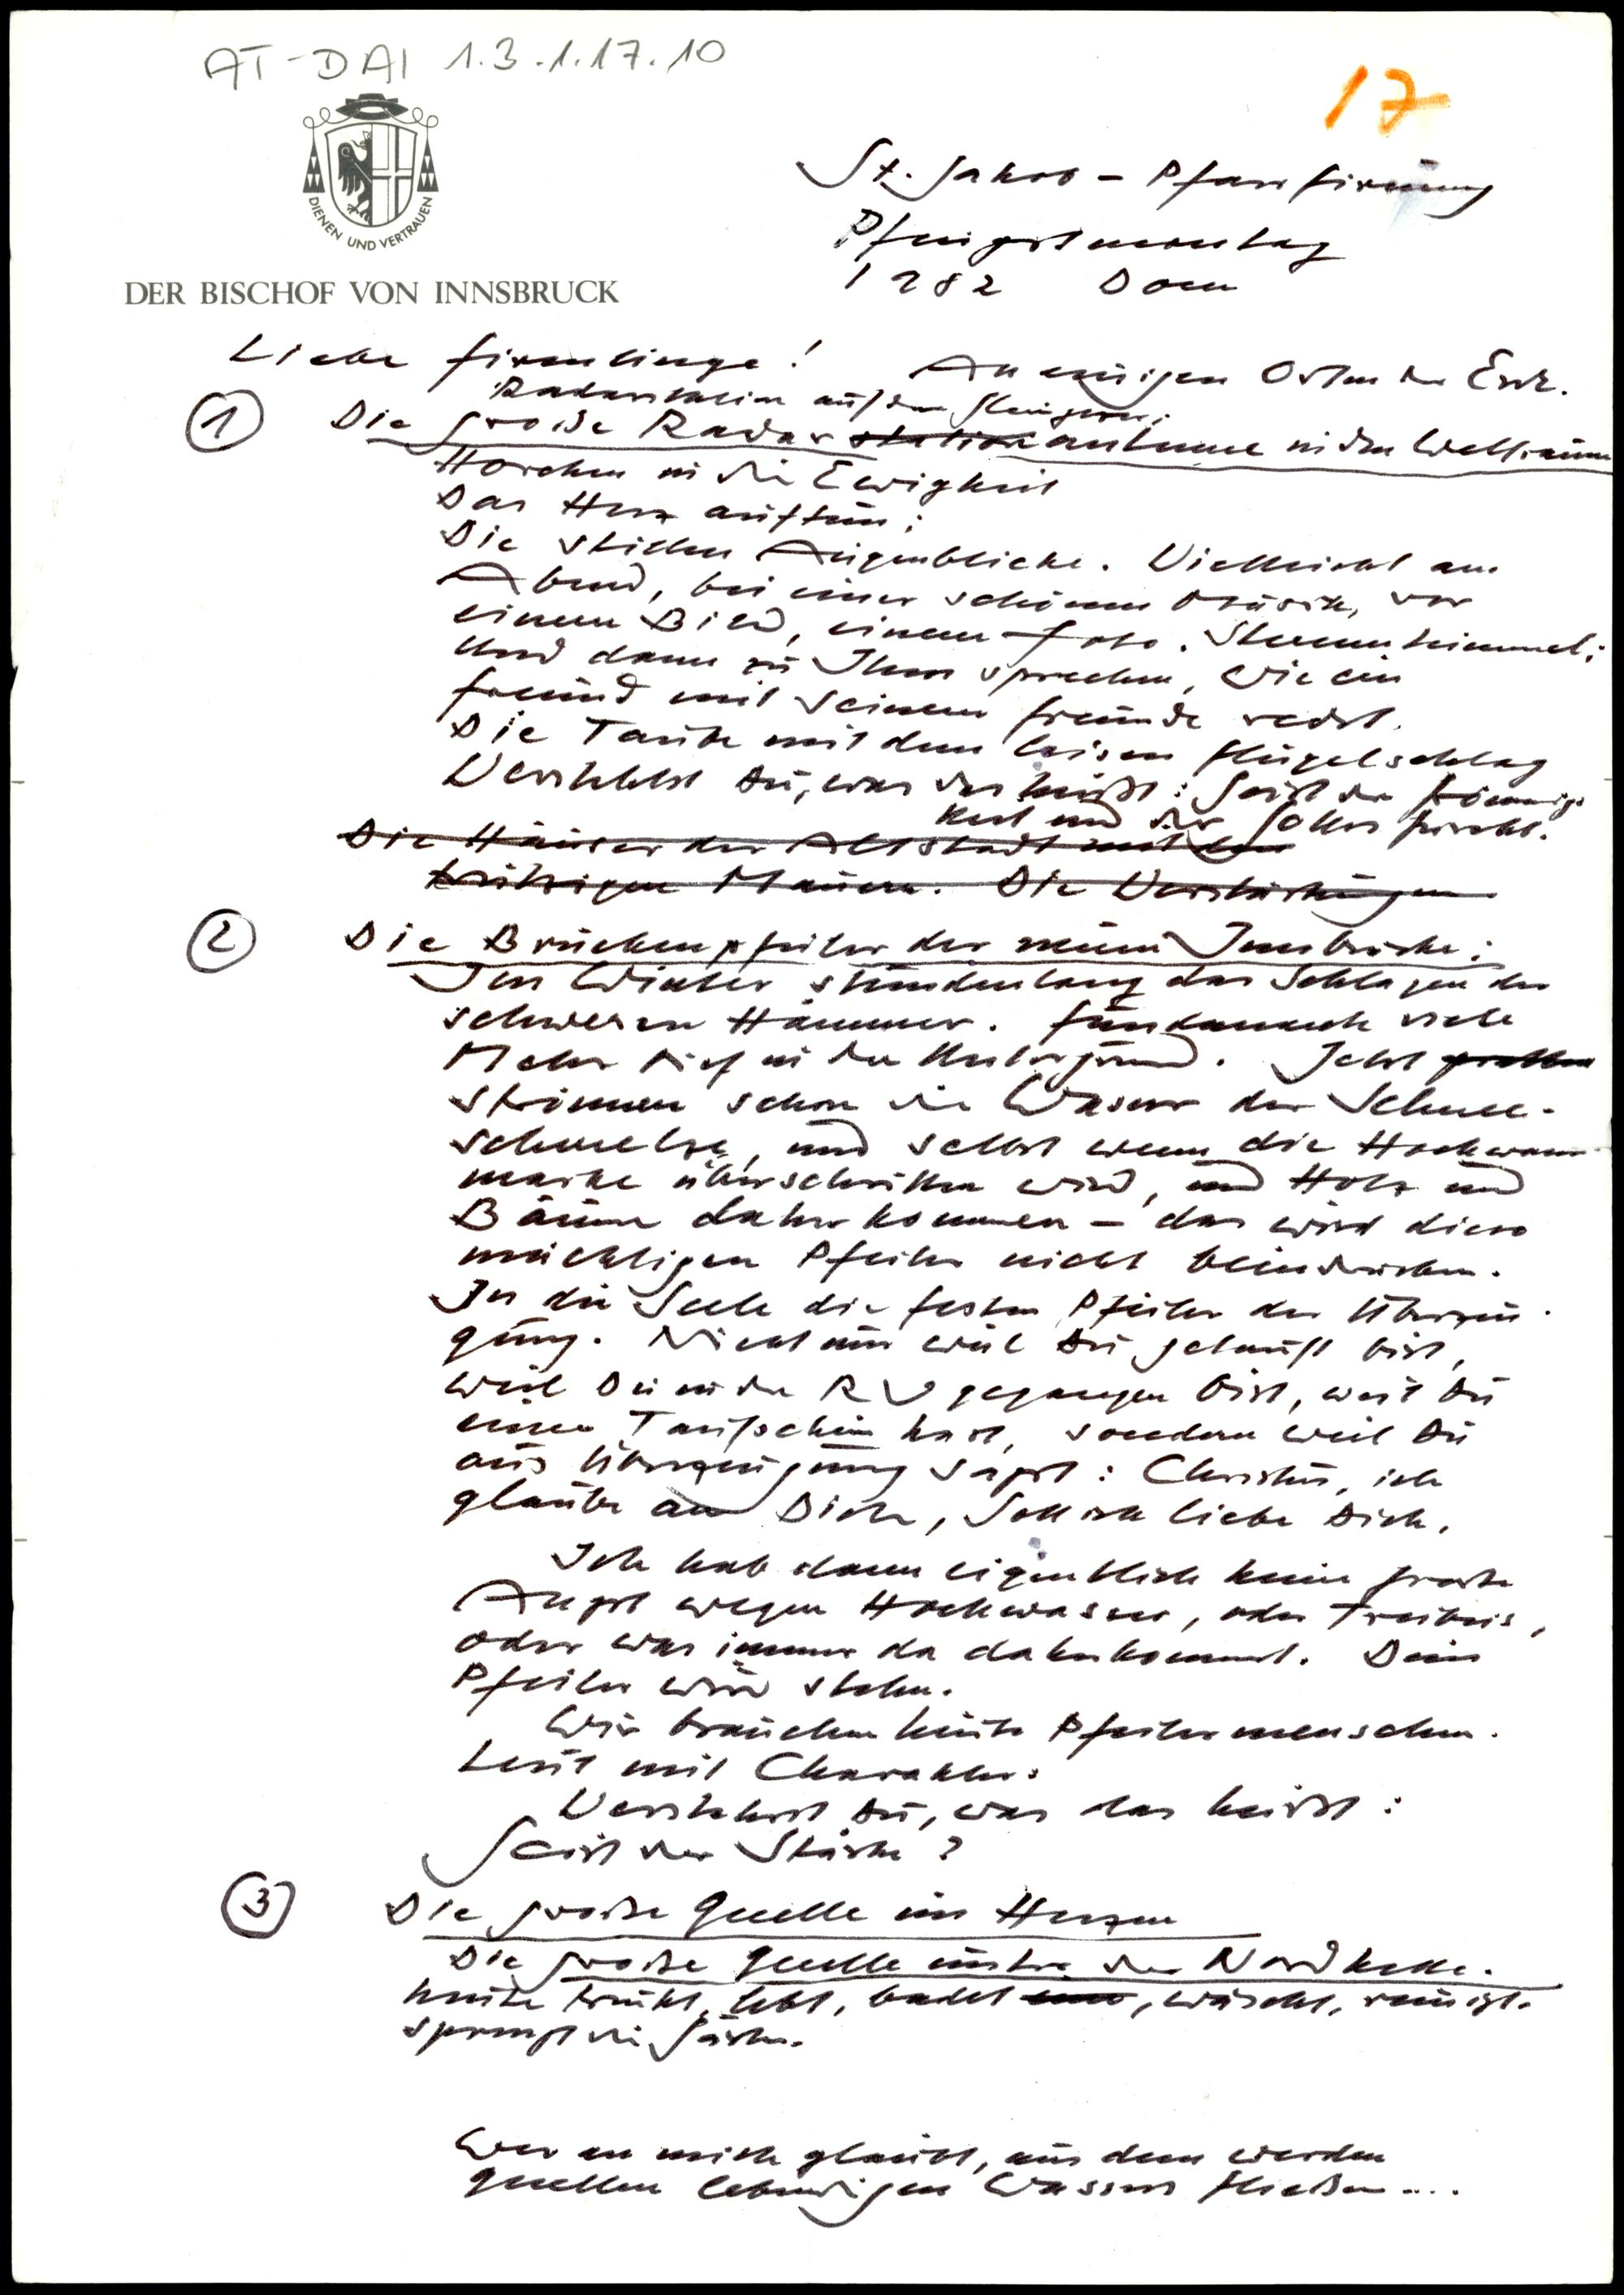 AT-DAI 1.3.1.17.10
17
DIENEN UND VERTRAUEN
DER BISCHOF VON INNSBRUCK
St. Jakob – Pfarrfirmung
Pfingstmontag
1982 Dom
Liebe Firmlinge! An einigen Orten der Erde.
Radarschirm auf dem
① Die große Radar station antenne in den Weltraum
Horchen in die Ewigkeit
Das Herz auftun;
Die stillen Augenblicke. Vielleicht am
Abend, bei einer schönen Musik, vor
einem Bild, einem Foto. Sternenhimmel;
Und dann zu Ihm sprechen, wie ein
Freund mit seinem Freunde redet.
Die Taube mit dem leisen Flügelschlag
Verstehst Du, was das heißt: Geist der Frömmig-
keit und der Gottesfurcht.
Die Häuser der Altstadt mit den
trutzigen Mauern. Die Verstärkungen
② Die Brückenpfeiler der neuen Innbrücke:
Im Winter stundenlang das Schlagen der
schweren Hämmer. Fundamente viele
Meter tief in den Untergrund. Jetzt
strömen schon die Wasser der Schnee-
schmelze, und selbst wenn die Hochwasser-
marke überschritten wird, und Holz und
Bäume daherkommen – das wird diese
mächtigen Pfeiler nicht beeindrucken.
In die Seele die festen Pfeiler der Überzeu-
gung. Nicht nur weil Du getauft bist,
weil Du in den RU gegangen bist, weil Du
einen Taufschein hast, sondern weil Du
aus Überzeugung sagst: Christus, ich
glaube an Dich, Gott ich liebe Dich.
Ich hab dann eigentlich keine große
Angst wegen Hochwasser, oder Treibeis,
oder was immer da daherkommt. Dein
Pfeiler wird stehn.
Wir brauchen heute Pfeilermenschen.
Leut mit Charakter.
Verstehst Du, was das heißt:
Geist der Stärke?
③ Die große Quelle im Herzen
Die große Quelle unter der Nordkette.
heute trinkt, lebt, badet, wäscht, reinigt.
sprengt die Gärten.
Wer an mich glaubt, aus dem werden
Quellen lebendigen Wassers fließen....